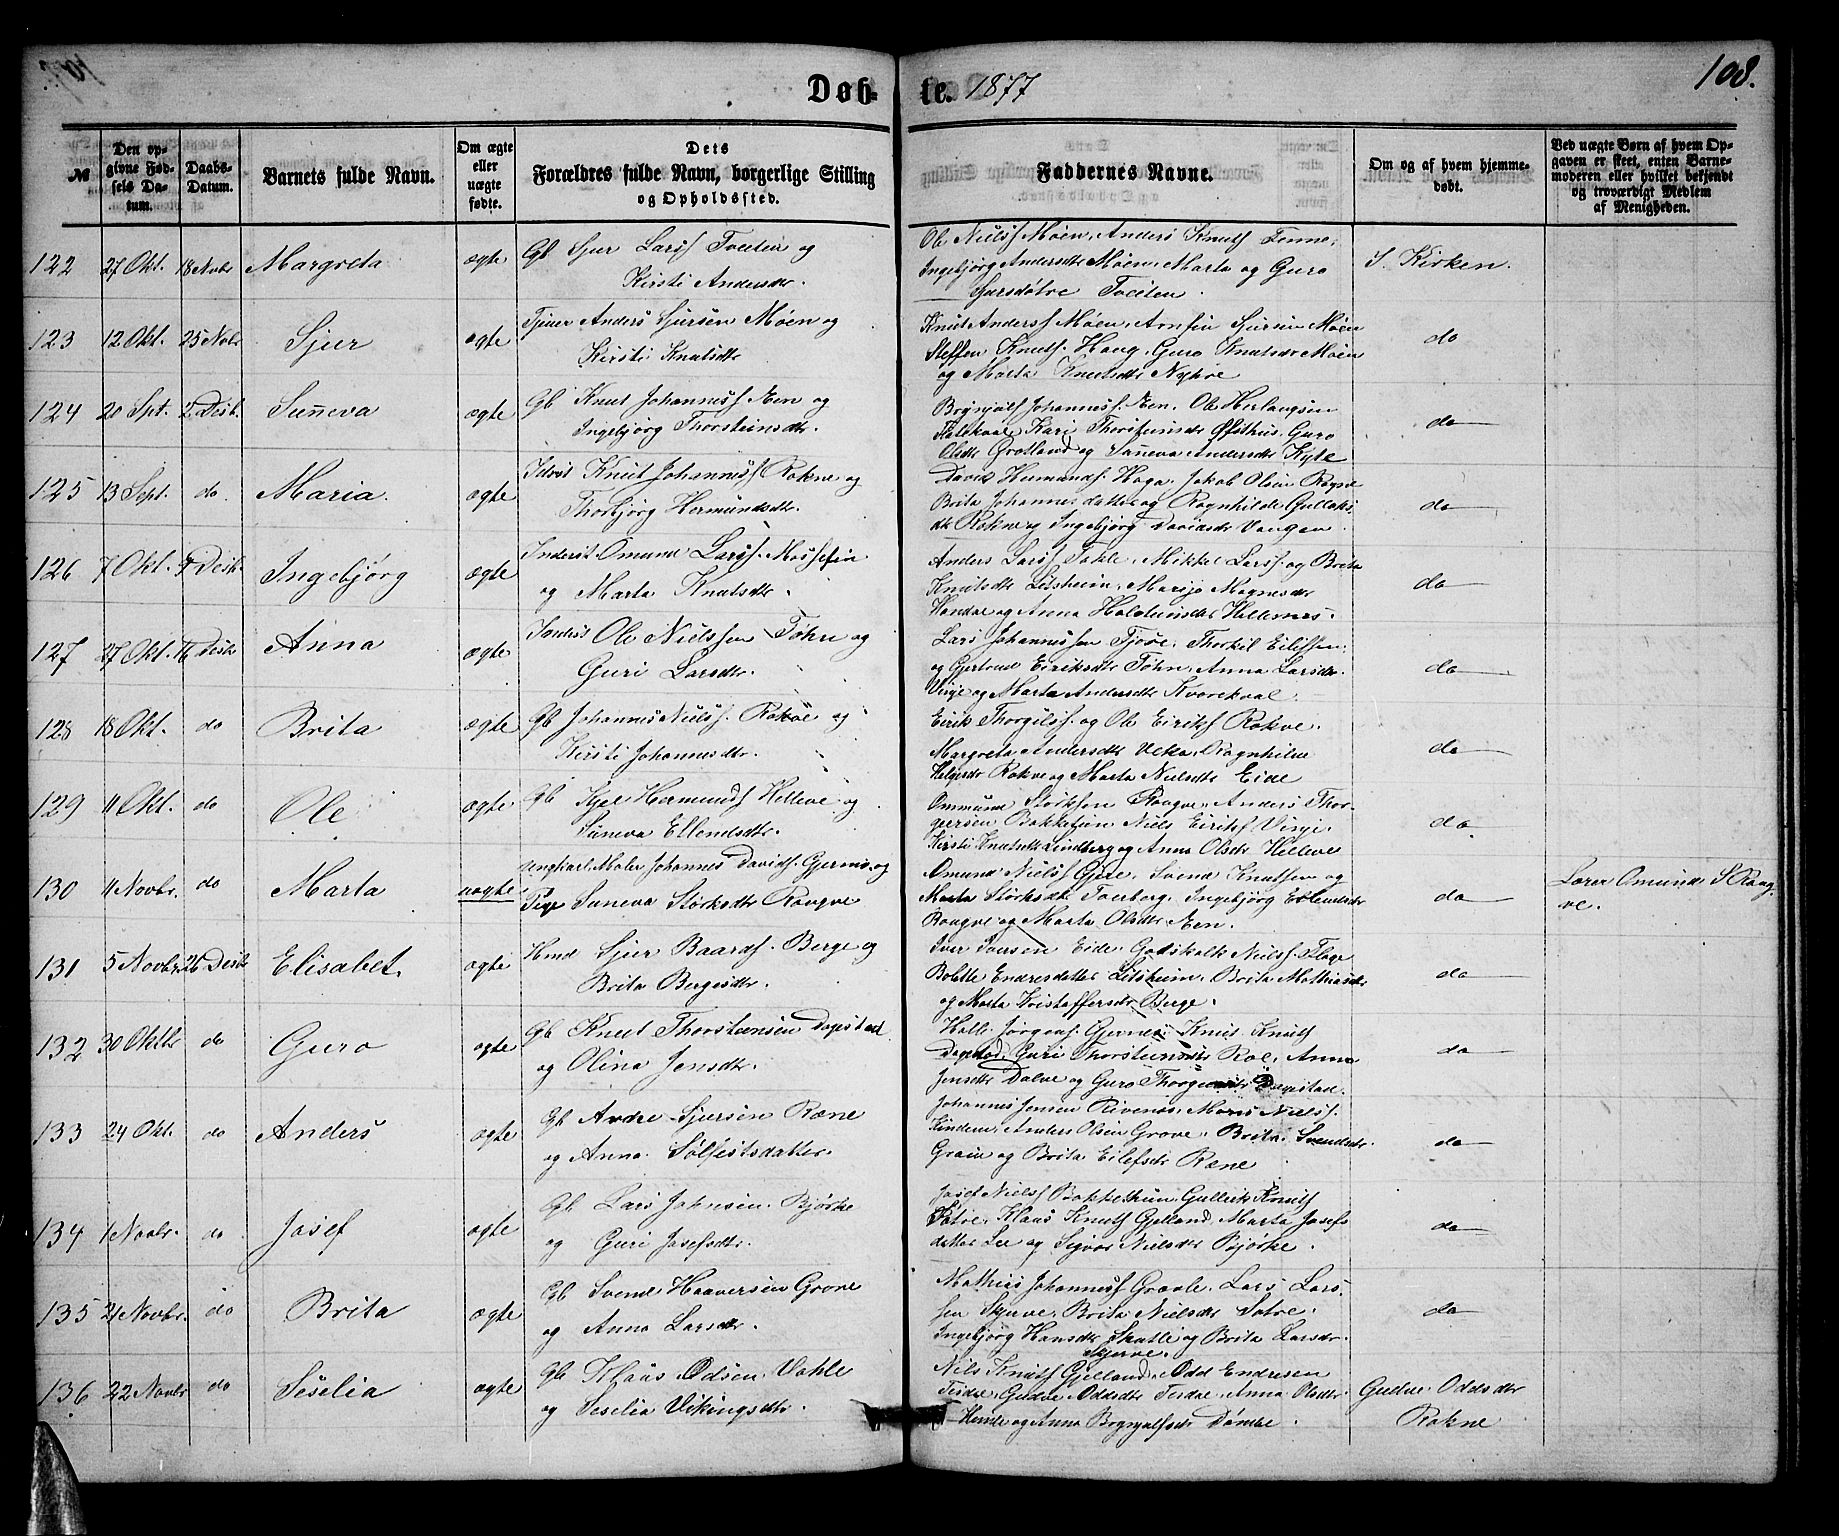 Døbte. 1877
108.
№
Den opgivne Fødsels Datum.
Daabs-Datum.
Barnets fulde Navn.
Om ægte eller uægte fødte.
Dets Forældres fulde Navn, borgerlige Stilling og Opholdssted.
Faddernes Navne.
Om og af hvem hjemmedøbt.
Ved uægte Børn af hvem Opgaven er skeet, enten Barnemoderen eller hvilket bekjendt og troværdigt Medlem af Menigheden.
122 27 Okt. 18 Novbr Margreta ægte Gb Sjur Larss Tveiten og
Kirsti Andersdr.
Ole Nielss Møen, Anders Knuts Tenne,
Ingebjørg Andersdtr Møen, Marta og Guro
Sjursdøtre Tveiten.
I Kirken.
123 12 Okt. 25 Novbr Sjur ægte Anders Sjursen Møen og
Kirsti Knutsdtr
Knut Anderss Møen, Arnfin Sjursen Møen
Steffen Knuts. Haug, Guro Knutsdr Møen
og Marta Knutsdtr Nyhre
do
124 20 Spt. 2 Desb. Suneva ægte Gb Knut Johanness Æen og
Ingebjørg Thorsteinsdtr.
Brynjulf Johanness. Æen, Ole Herlaugsen
Kari Thorsteinsdtr Øfsthus, Guro
Olsdtr Grotland og Suneva Andersdtr Kyte
do
125 13 Sept. do. Maria ægte Knut Johanness Rokne og
Thorbjørg Hermundsdtr.
David Hermunds. Haga, Jakob Olsen
Brita Johannesdatter og Ragnhilde Gullaks
dtr Rokne og Ingebjørg Davidsdtr Vangen
do
126 7 Okt. Desbr Ingebjørg ægte Inderst Omund Larss.
og Marta Knutsdtr.
Anders Larss Takle, Mikkel Larss. og Brita
Knutsdtr Litsheim, Marijo Magnesdtr
og Anna Holsteinsdtr Hellernes.
do
127 27 Okt. Desbr Anna ægte Inderst Ole Nielssen Føhn og
Guri Larsdtr.
Lars Johannessen Tjøre, Thorkil Eilifsen
og Gjertrud Eiriksdtr Føhn, Anna Larsdtr
Vinje og Marta Andersdtr Kvarekval
do
128 18 Okt. do Brita ægte Gb Johannes Nielss. Rokve og
Kirsti Johannesdtr.
Eirik Thorgilss. og Ole Eiriks Rokve.
Margreta Andersdtr Ragnhilde
Helgesdr Rokve og Marta Nielsdtr Eide
do
129 11 Okt. do Ole ægte Gb Kjel Hermunds Helleve og
Suneva Ellendsdtr.
Ommund Størksen Raugve, Anders Thor-
gersen Bakketun Niels Eiriks Vinje.
Kirsti Knutsdtr Lindberg og Anna Olsdr Helleve
do
130 11 Novbr. do Marta uægte Ungkarl Maler Johannes Davids. Gjerme og
Pige Suneva Størksdtr Raugve
Omund Nielss Gjere, Svend Knutsen og
Marta Størksdtr Tveberg, Ingebjørg Erlendsdr
Raugve og Marta Olsdtr Æen.
do
Lærer Omund S Raug
ve.
131 5 Novbr. 26 Desbr Elisabet. ægte Hmd Sjur Baards. Berge og
Brita Bergesdtr.
Iver Iversen Eide Godskalk Nielss. Flage
Bolette Endresdatter Litsheim, Brita Mathiasdtr
og Marta Kristaffersdtr Berge.
do
132 30 Oktbr do Guro ægte Gb Knut Thorsteinsen Dagestad
og Olina Jensdtr.
Halle Jørgens. Gjernes, Knut Knuts
Dagestad, Guri Thorsteinsdtr Roe, Anna
Jensdtr Dalve og Guro Dagestad.
do
133 24 Okt. do Anders ægte Gb Andre Sjursen Ræne
og Anna Sølfestsdatter.
Johannes Jensen Rivenæs, Mons Nielss.
Kindem, Anders Olsen Grove, Brita Svendsdtr
Graue og Brita Eilefsdtr Ræne
do
134 1 Novbr. do Josef ægte Gb Lars Johnsen Bjørke
og Guri Josefsdtr.
Josef Nielss Bakkethun, Gullerik Knuts
Sætre, Klaus Knuts Gjelland, Marta Josefs
datter Lee og Sigvor Nielsdtr Bjørke.
do
135 21 Novbr. do Brita ægte Gb Svend Haaversen Grove
og Anna Larsdtr.
Mathias Johanness Graule, Lars Lars
sen Skjerve, Brita Nielsdtr Sætre.
Ingebjørg Hansdtr Skutle og Brita Larsdr
Skjerve.
do
136 22 Novbr do Seselia ægte Gb Klaus Odsen Væhle
og Seselia Vikingsdtr.
Nils Knuts Gjelland, Odd Endresen
Gudve Oddsdtr Anna Olsdtr
og Anna Brynjulfsdtr Dømbe.
Gudve Oddsdtr
Rokne